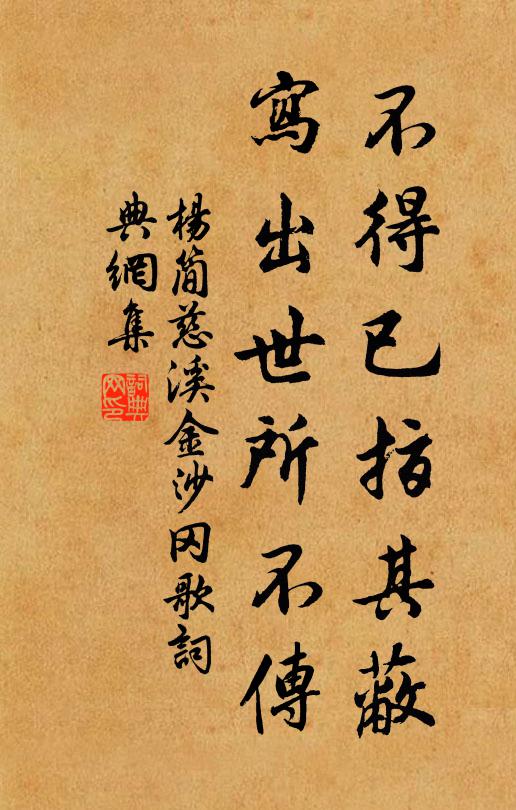 不得已指其蔽
寫出世所不傳
楊簡慈溪金沙冈歌詞
典網集
詞典网印